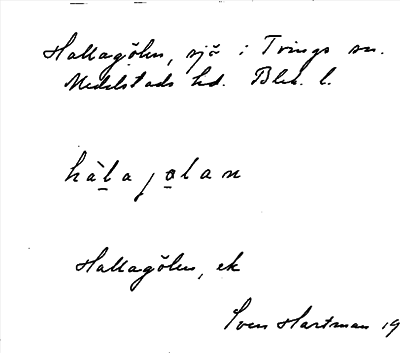 Hallagölen, sjö i Tvings sn.
Medelstads hd. Blek. l.
hàlajolan
Hallagölen, ek
Sven Hartman 19